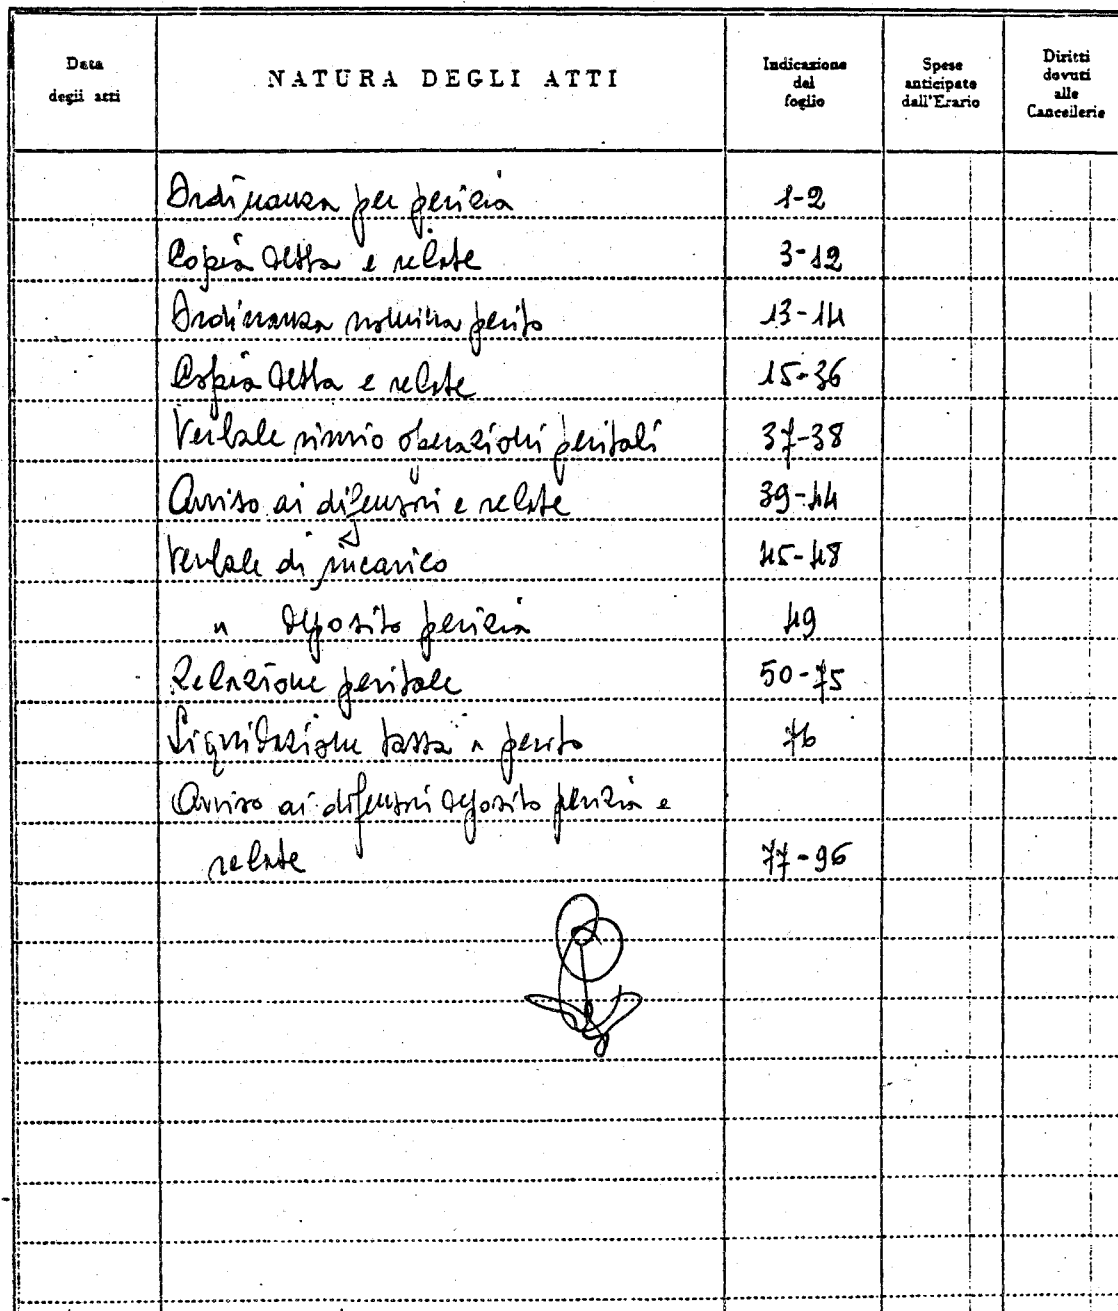 Data
degli atti
NATURA DEGLI ATTI
Indicazione
del
foglio
Spese
anticipate
dall'Erario
Diritti
dovuti
alle
Cancellerie
Ordinanza per perizia 1-2
Copia detta e relate 3-12
Ordinanza nomina perito 13-14
Copia detta e relate 15-36
Verbale rinvio operazioni peritali 37-38
Avviso ai difensori e relate 39-44
Verbale di incarico 45-48
" deposito perizia 49
Relazione peritale 50-75
Liquidazione tassa a perito 76
Avviso ai difensori deposito perizia e
relate 77-96